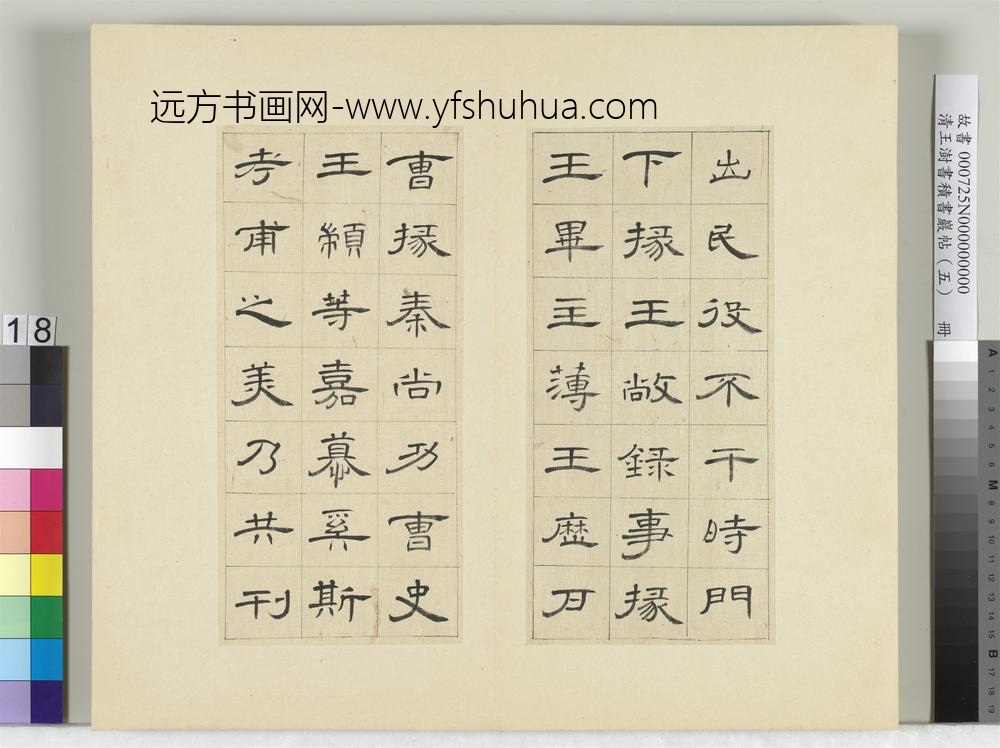 远方书画网-www.yfshuhua.com
出民役不干時門
下掾王敞録事掾
王畢主薄王歷戶
曹掾秦尚功曹史
王顓等嘉慕奚斯
考甫之美乃共刊
故書 000725N000000000
清王澍書積書巖帖（五） 冊
18
A 1 2 3 4 5 6 M 8 9 10 11 12 13 14 15 B 17 18 19